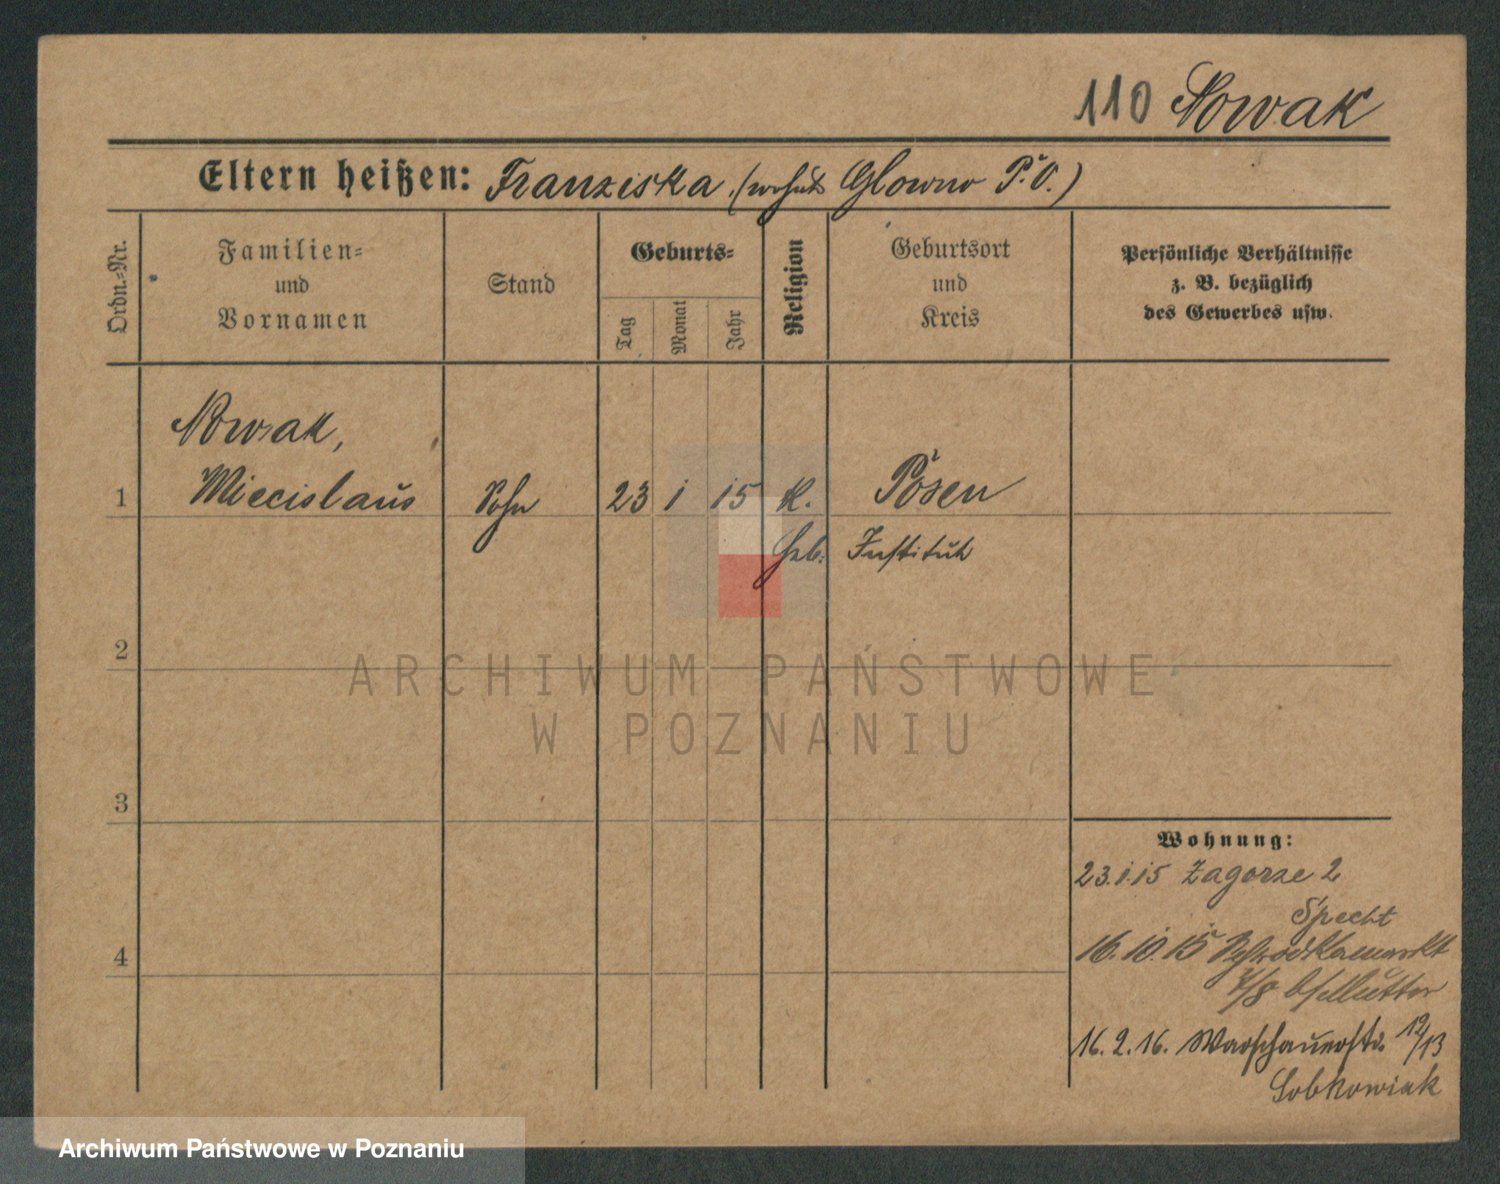 110 Nowak
Eltern heißen: Franziska (wohnt Glowno P. O.)
Ordn.=Nr.
Familien=
und
Vornamen
Stand
Geburts=
Tag
Monat
Jahr
Religion
Geburtsort
und
Kreis
Persönliche Verhältnisse
z. B. bezüglich
des Gewerbes usw.
Nowak,
1 Miecislaus Sohn 23 1 15 K. Posen
Geb. Institut
2
3
4
Wohnung:
23.1.15 Zagorze 2
Specht
16.10.15 Schrodkamarkt
7/8 b/Mutter
16.2.16. Warschauerstr. 12/13
Sobkowiak
ARCHIWUM PAŃSTWOWE
W POZNANIU
Archiwum Państwowe w Poznaniu